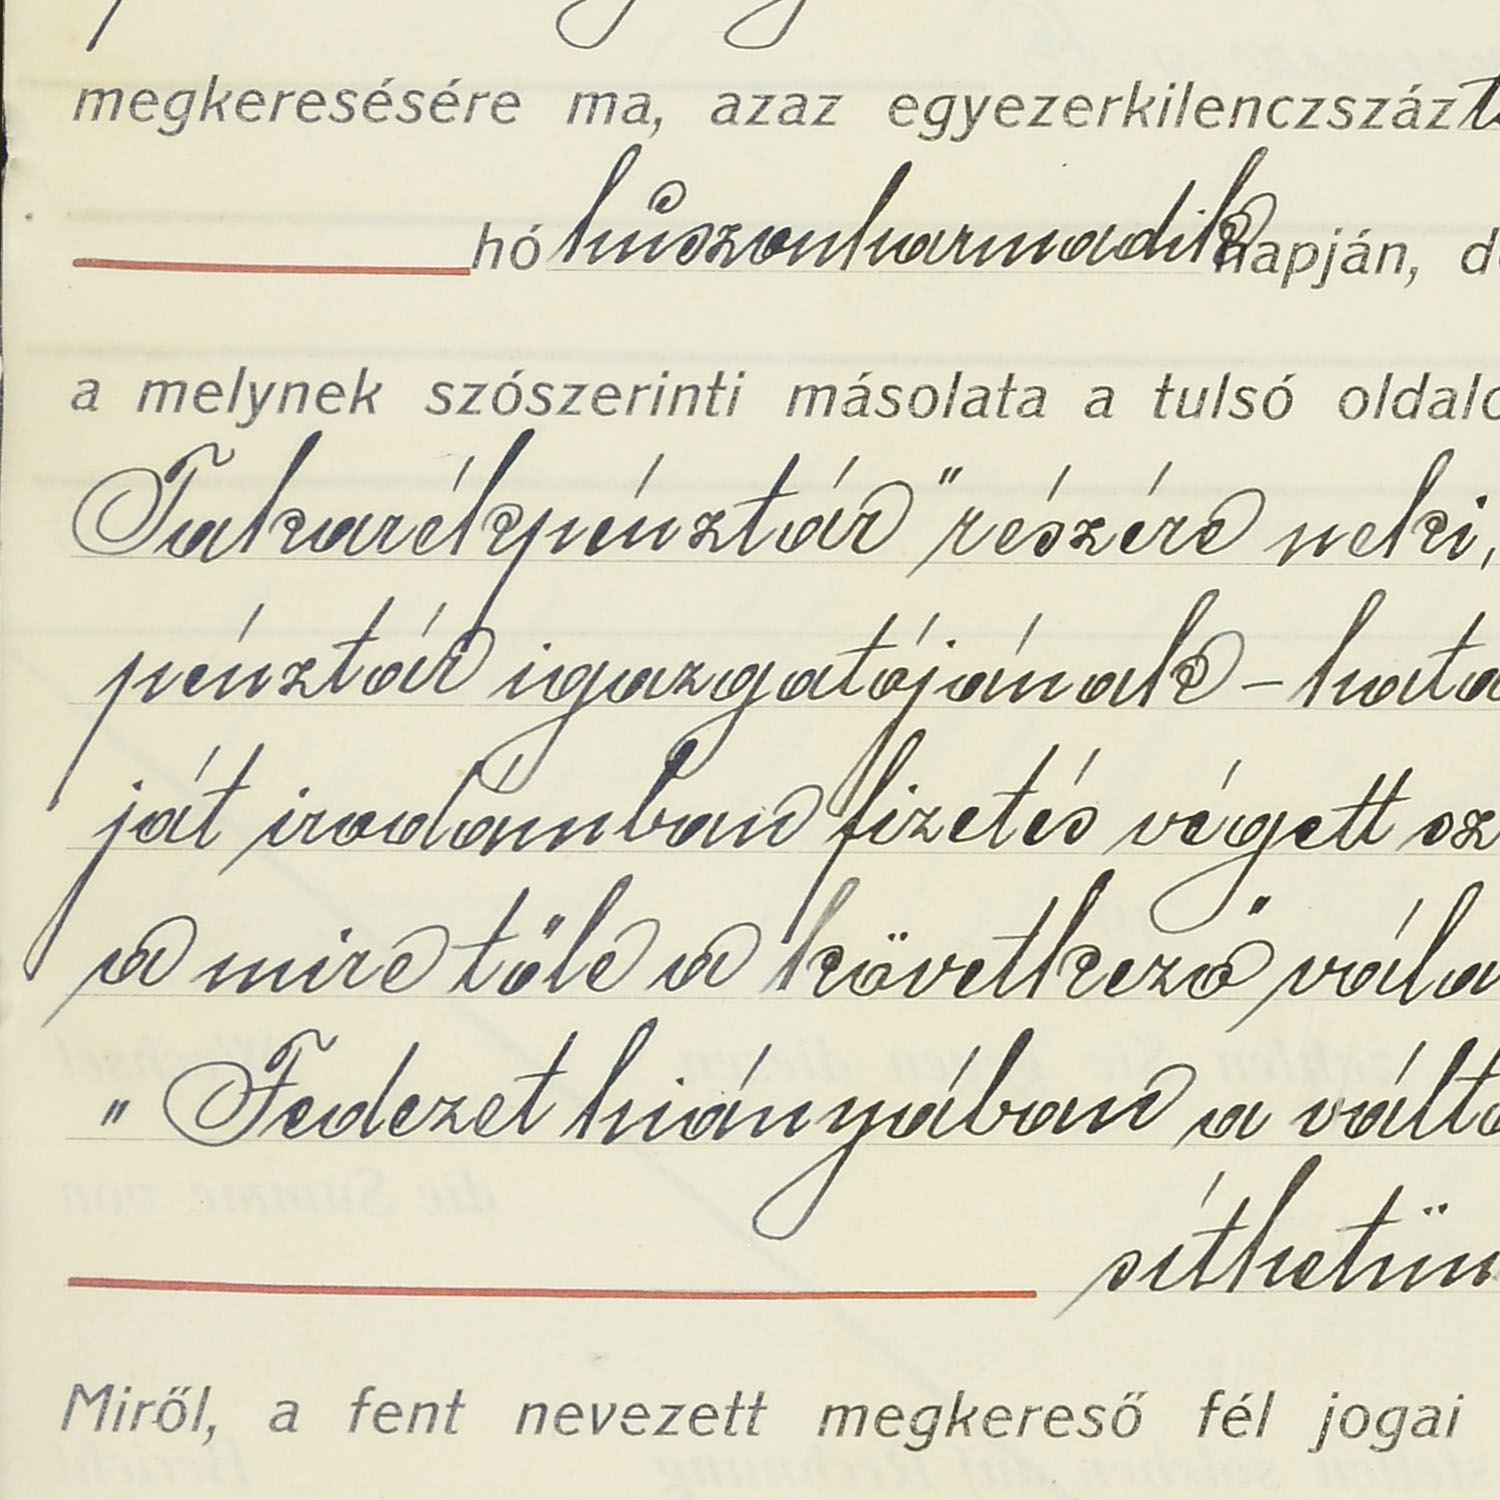 megkeresésére ma, azaz egyezerkilenczszázt
hó huszonharmadik napján, d
a melynek szószerinti másolata a tulsó oldalo
Takarékpénztár" részére neki,
pénztár igazgatójának - hata
ját irodámban fizetés végett sz
a mire tőle a következő vála
„ Fedezet hiányában a vált
síthetün
Miről, a fent nevezett megkereső fél jogai